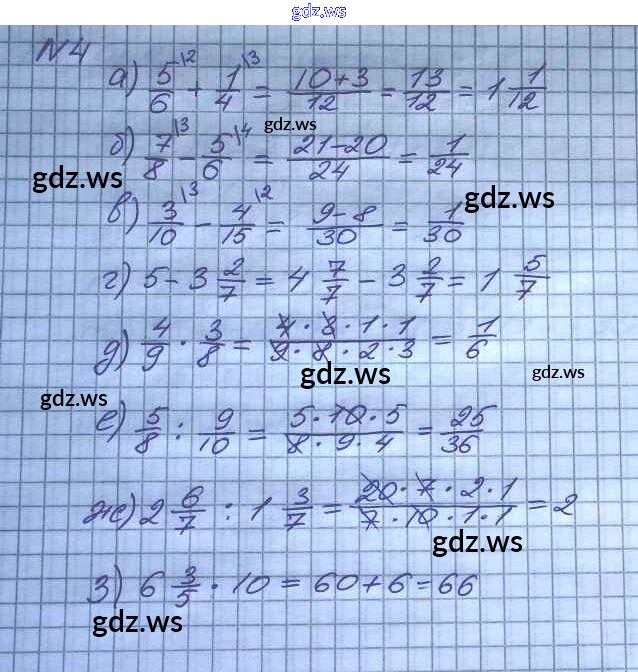 gdz.ws
N4
а) 5/6 \2 + 1/4 \3 = (10+3)/12 = 13/12 = 1 1/12
gdz.ws
б) 7/8 \3 − 5/6 \4 = (21−20)/24 = 1/24
gdz.ws gdz.ws
в) 3/10 \3 − 4/15 \2 = (9−8)/30 = 1/30
г) 5 − 3 2/7 = 4 7/7 − 3 2/7 = 1 5/7
д) 4/9 · 3/8 = (4·3·1·1)/(9·8·2·3) = 1/6
gdz.ws gdz.ws
gdz.ws
е) 5/8 : 9/10 = (5·10·5)/(8·9·4) = 25/36
ж) 2 6/7 : 1 3/7 = (20·7·2·1)/(7·10·1·1) = 2
gdz.ws
з) 6 3/5 · 10 = 60+6 = 66
gdz.ws